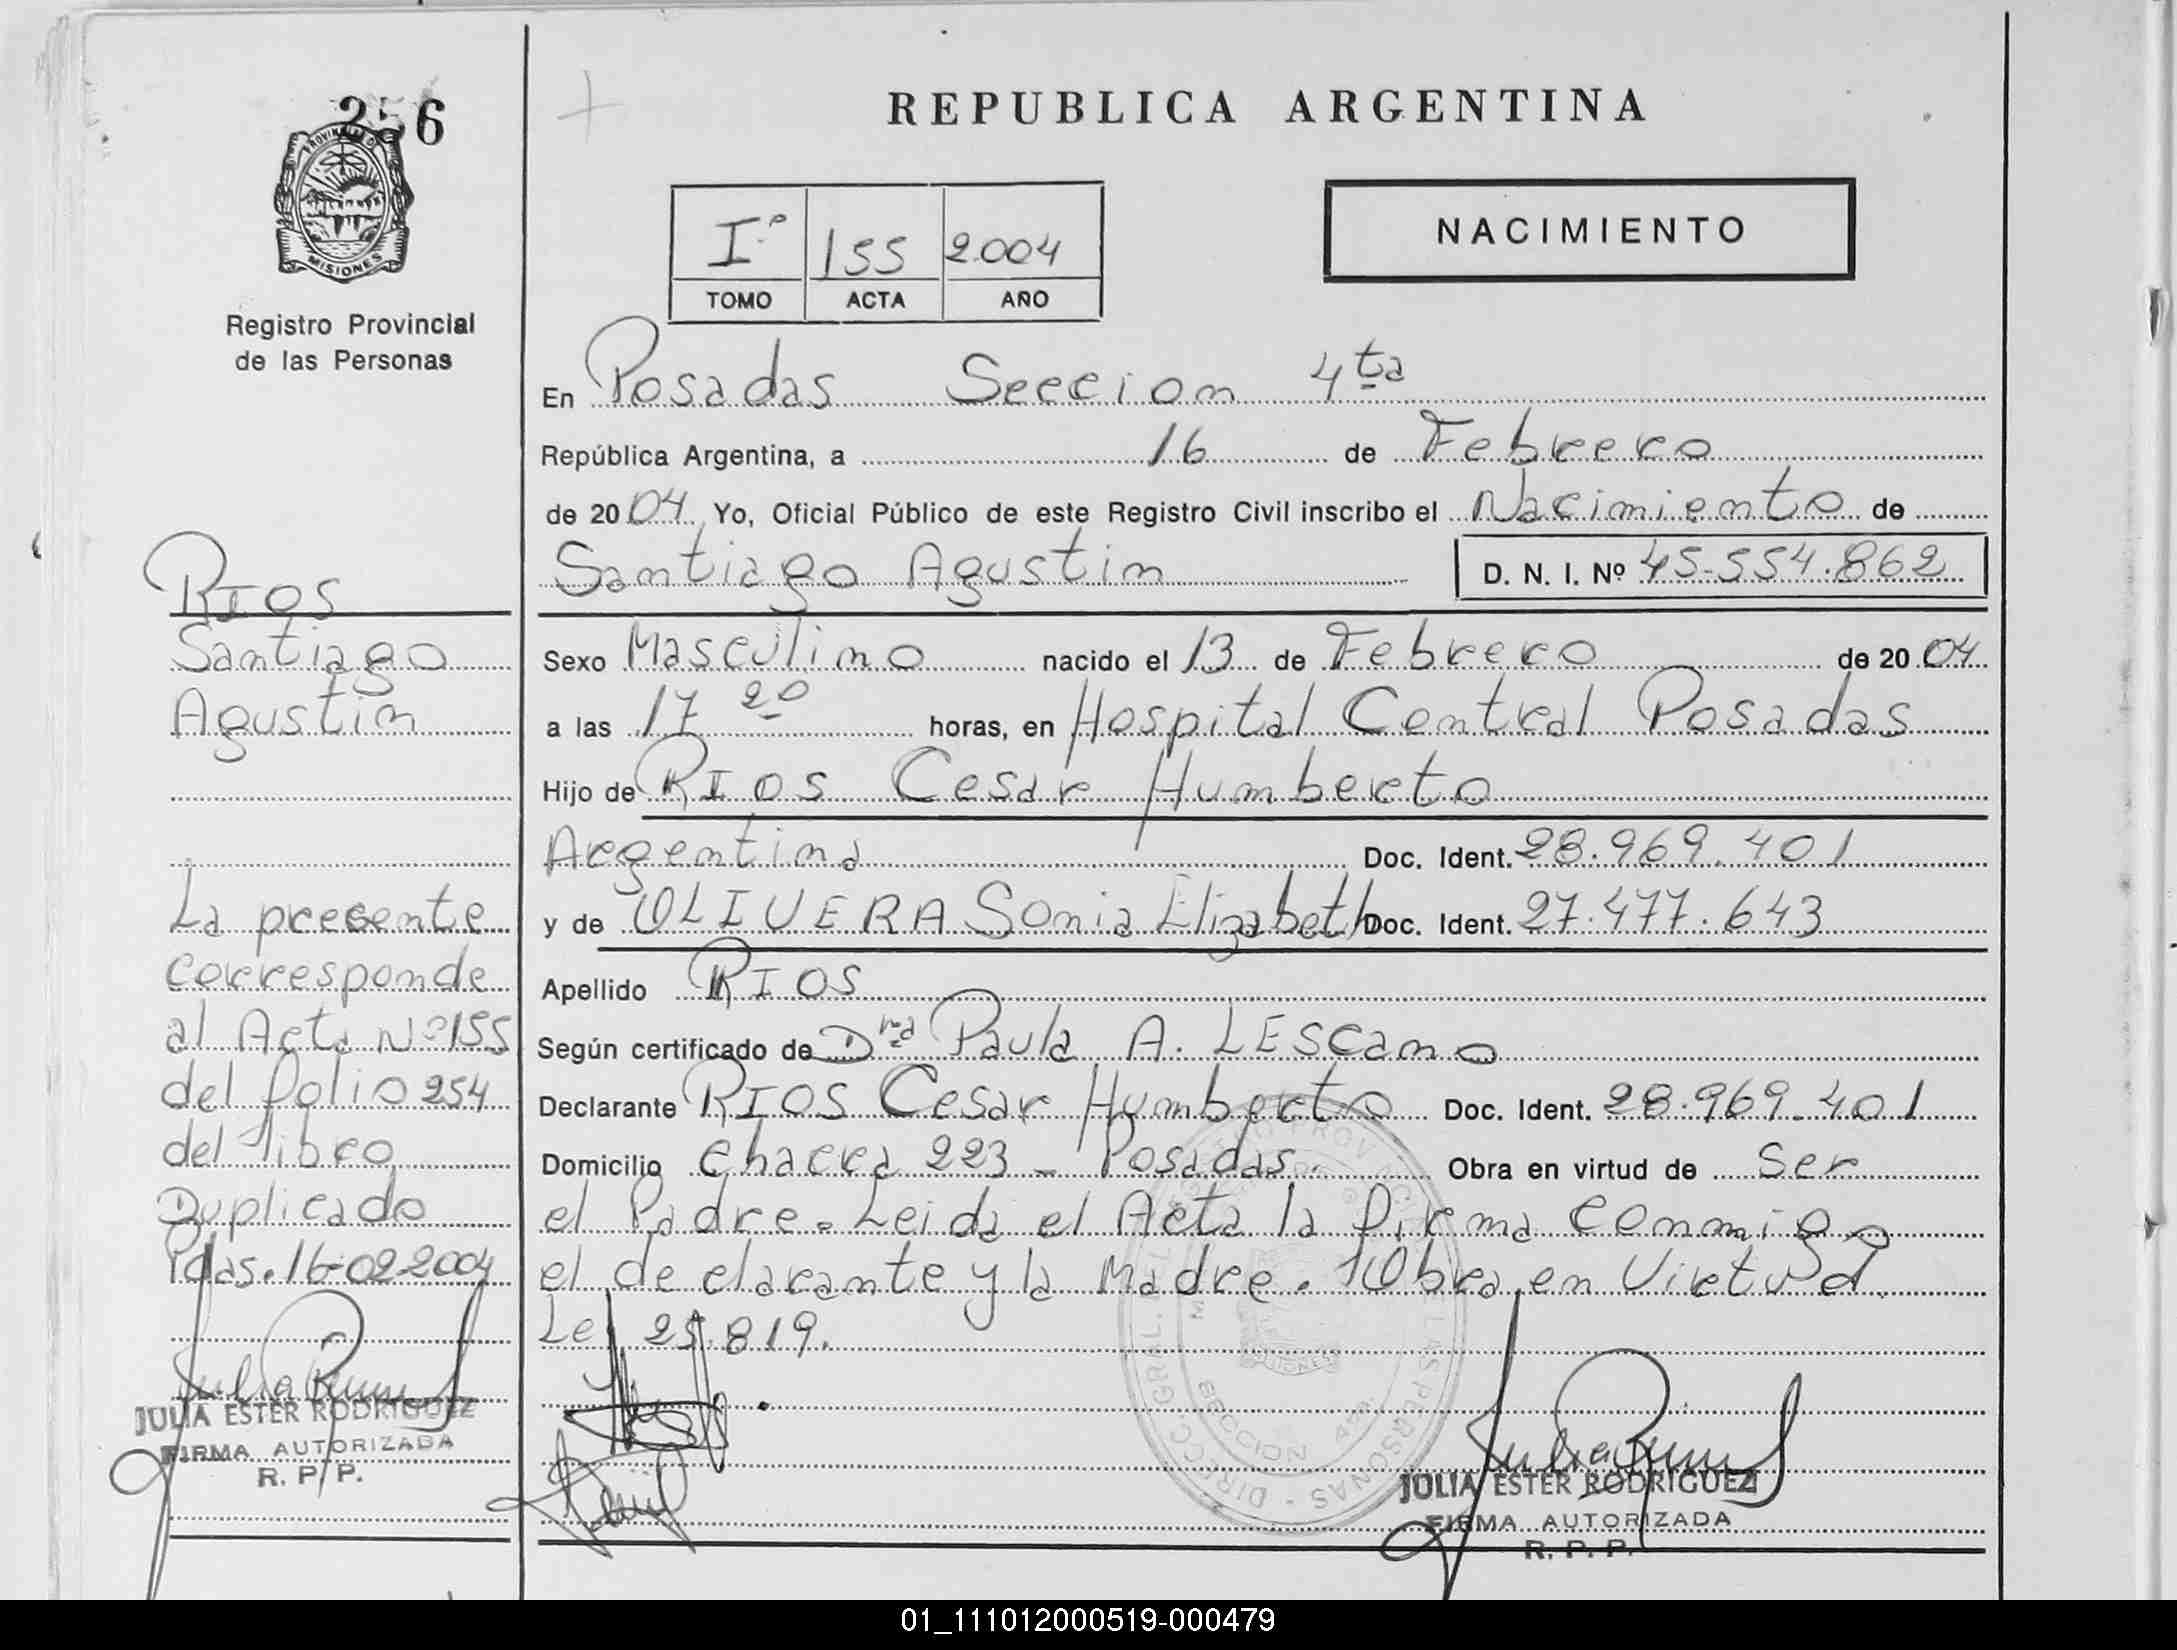 256
PROVINCIA DE
MISIONES
Registro Provincial
de las Personas
RIOS
Santiago
Agustin
La presente
corresponde
al Acta Nº 155
del folio 254
del libro
Duplicado
Pdas. 16-02-2004
JULIA ESTER RODRIGUEZ
FIRMA AUTORIZADA
R. P. P.
REPUBLICA ARGENTINA
Iº 155 2.004
TOMO ACTA AÑO
NACIMIENTO
En Posadas Seccion 4ta
República Argentina, a 16 de Febrero
de 2004 Yo, Oficial Público de este Registro Civil inscribo el Nacimiento de
Santiago Agustin D. N. I. Nº 45.554.862
Sexo Masculino nacido el 13 de Febrero de 2004
a las 17 20 horas, en Hospital Central Posadas
Hijo de RIOS Cesar Humberto
Argentina Doc. Ident. 28.969.401
y de OLIVERA Sonia Elizabeth Doc. Ident. 27.477.643
Apellido RIOS
Según certificado de Dra Paula A. LEScano
Declarante RIOS Cesar Humberto Doc. Ident. 28.969.401
Domicilio Chacra 223 - Posadas. Obra en virtud de Ser
el Padre. Leida el Acta la firma conmigo
el declarante y la Madre. Obra en Virtud
Ley 25.819.
SECCION 4ta.
JULIA ESTER RODRIGUEZ
FIRMA AUTORIZADA
R. P. P.
01_111012000519-000479